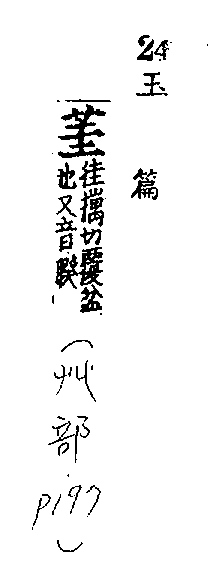 24 玉篇
茥佳攜切覆盆
也又音睽
(艸部.
p197)